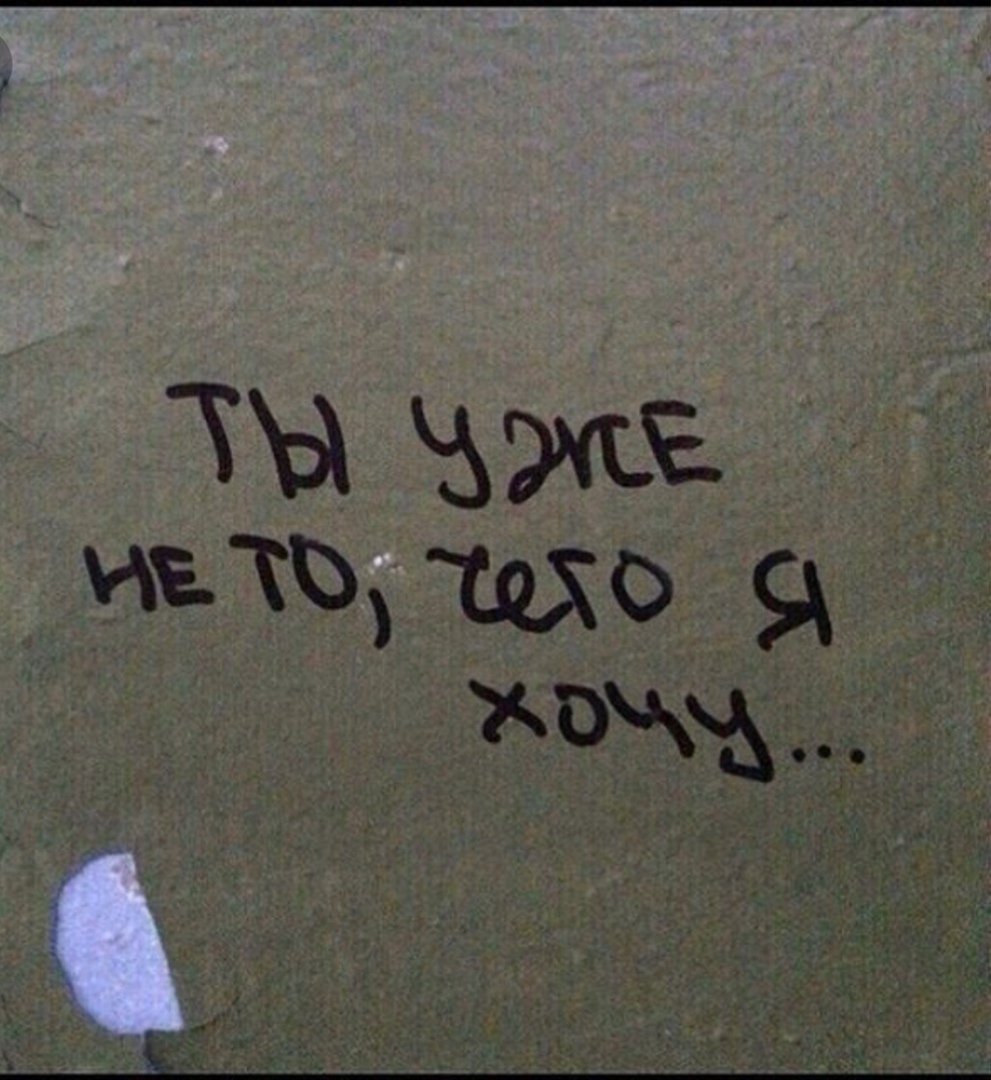 ТЫ УЖЕ
НЕ ТО, чего Я
хочу...